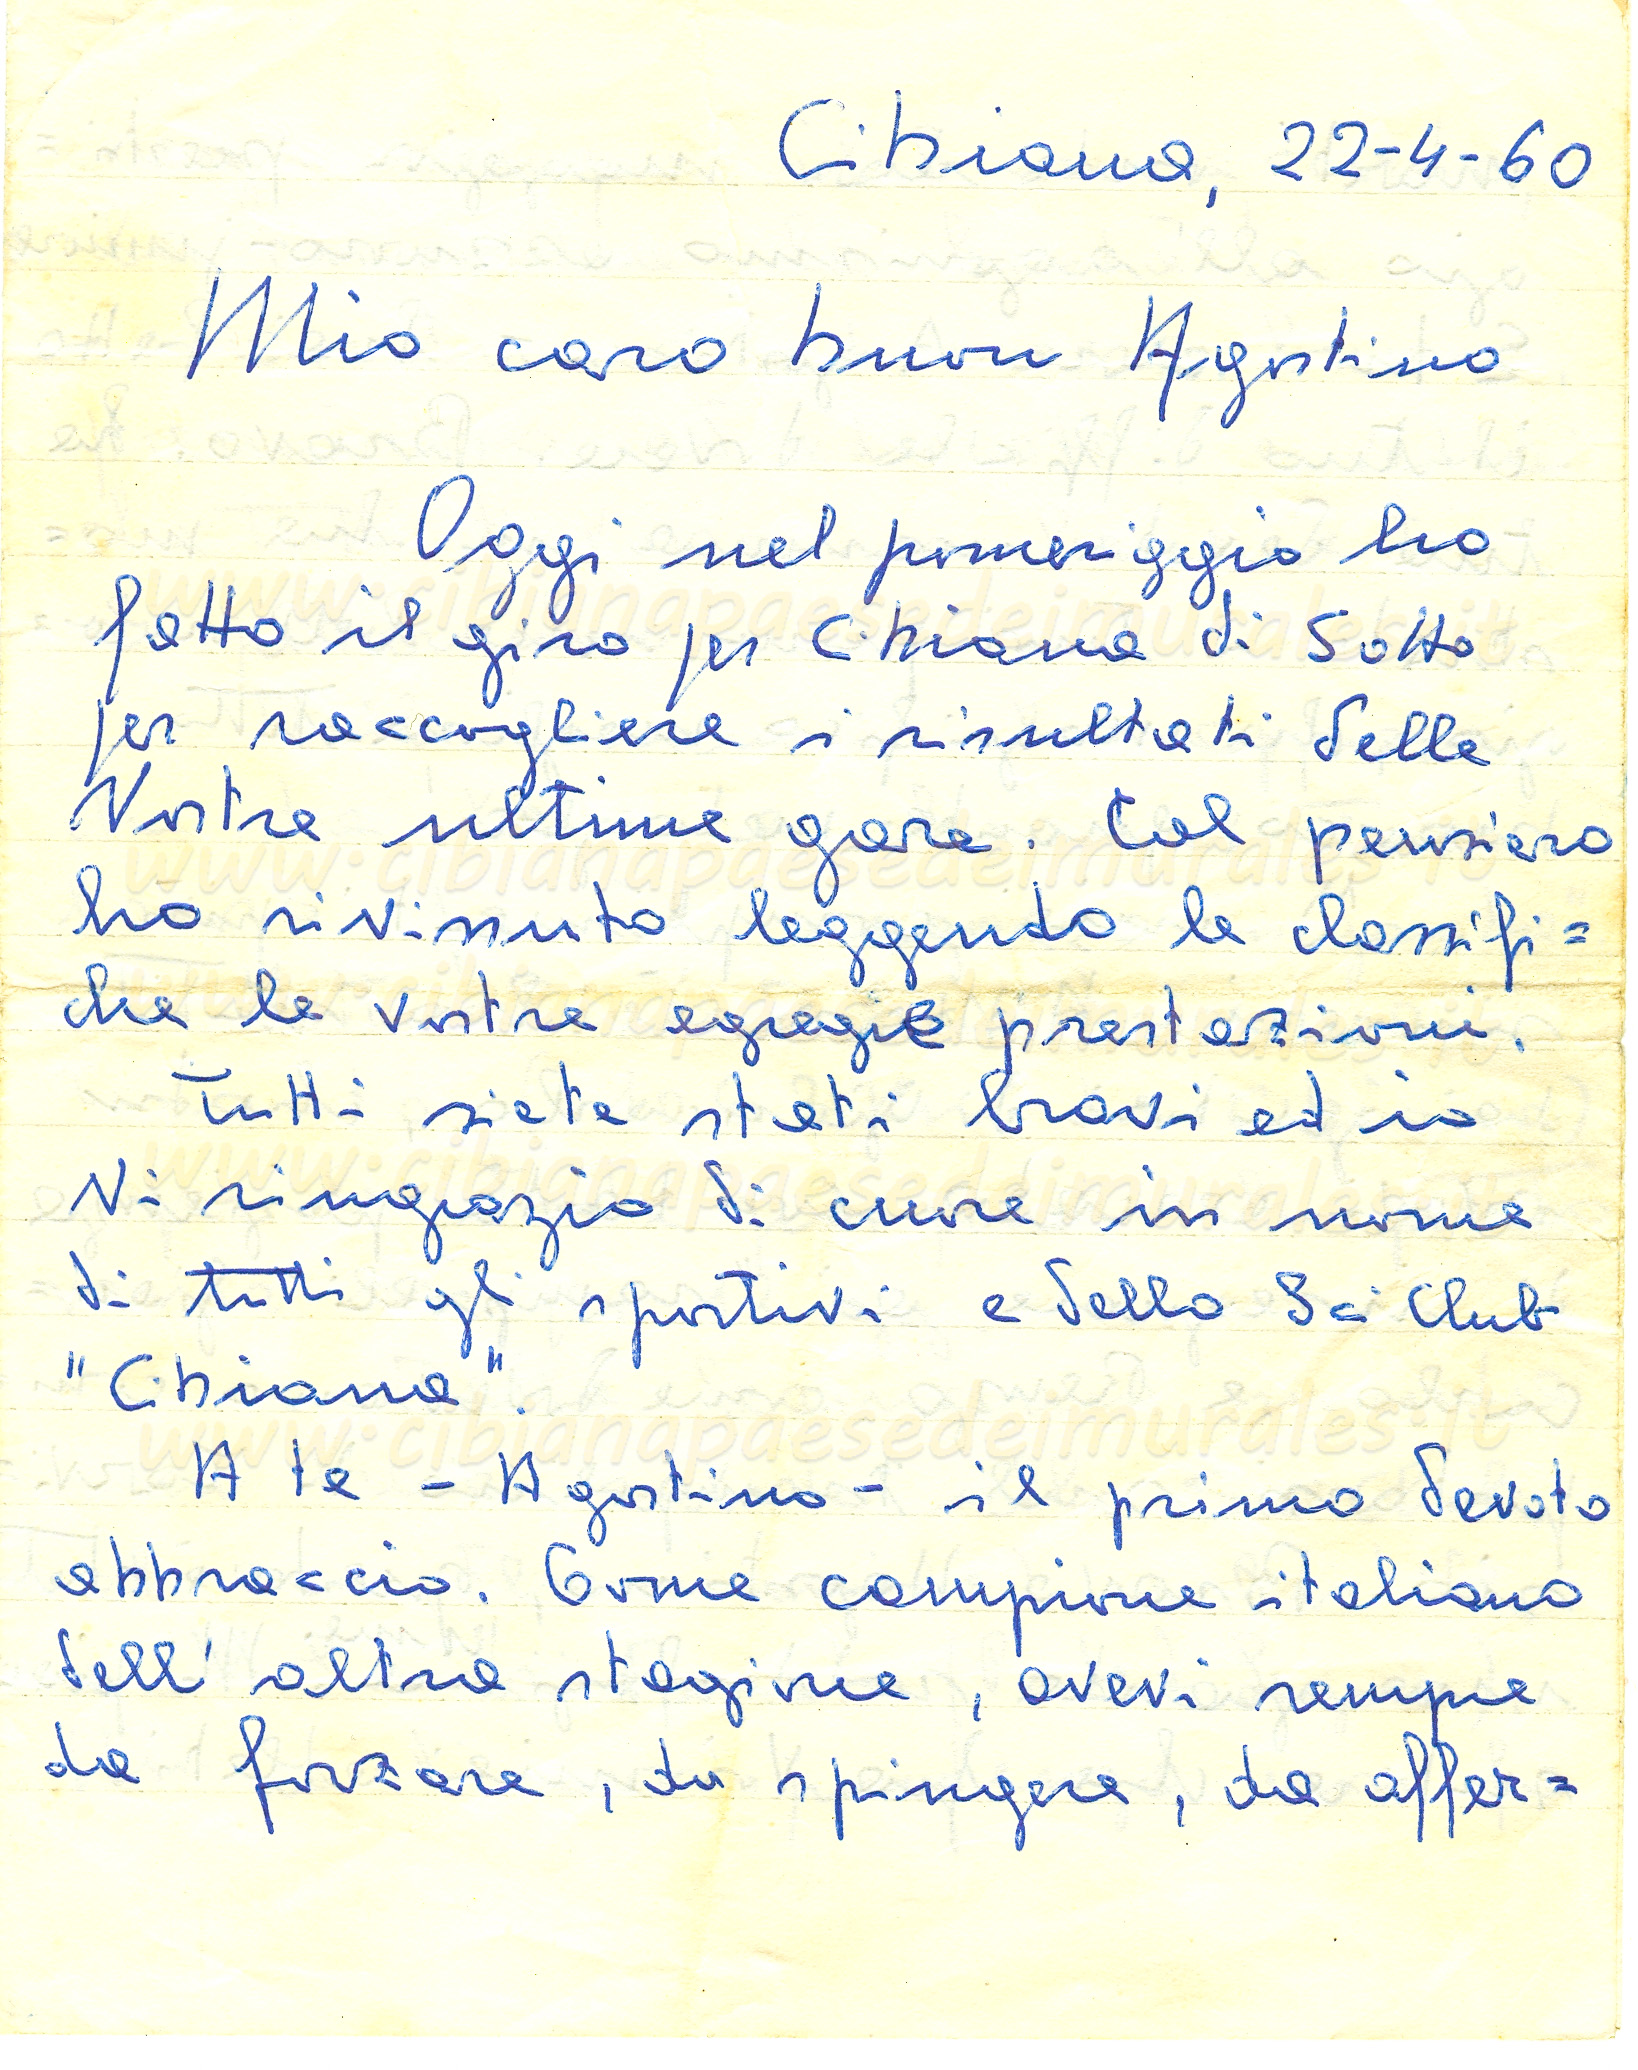 Cibiana, 22-4-60
Mio caro buon Agostino
Oggi nel pomeriggio ho
fatto il giro per Cibiana di Sotto
per raccogliere i risultati delle
Vostre ultime gare. Col pensiero
ho rivissuto leggendo le classifi=
che le vostre egregie prestazioni.
Tutti siete stati bravi ed io
Vi ringrazio di cuore in nome
di tutti gli sportivi e dello Sci Club
"Cibiana".
A te - Agostino - il primo devoto
abbraccio. Come campione italiano
dell'altra stagione, avevi sempre
da forzare, da spingere, da affer=
www.cibianapaesedeimurales.it
www.cibianapaesedeimurales.it
www.cibianapaesedeimurales.it
www.cibianapaesedeimurales.it
www.cibianapaesedeimurales.it